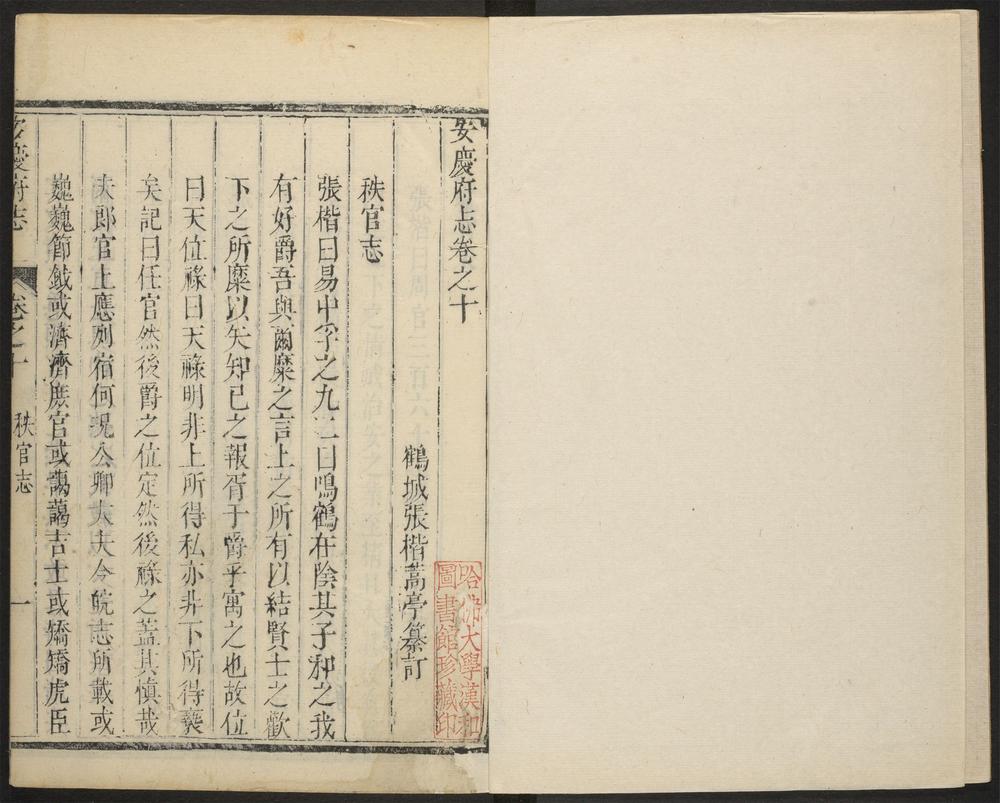 安慶府志卷之十
鶴城張楷蒿亭纂訂
秩官志
張楷曰易中孚之九二曰鳴鶴在陰其子和之我
有好爵吾與爾縻之言上之所有以結賢士之歡
下之所縻以矢知已之報胥于爵乎寓之也故位
曰天位祿曰天祿明非上所得私亦非下所得褻
矣記曰任官然後爵之位定然後祿之蓋其慎哉
夫郎官上應列宿何況公卿大夫今皖志所載或
巍巍節鉞或濟濟庶官或藹藹吉士或矯矯虎臣
安慶府志
卷之十
秩官志
一
哈佛大學漢和
圖書館珍藏印